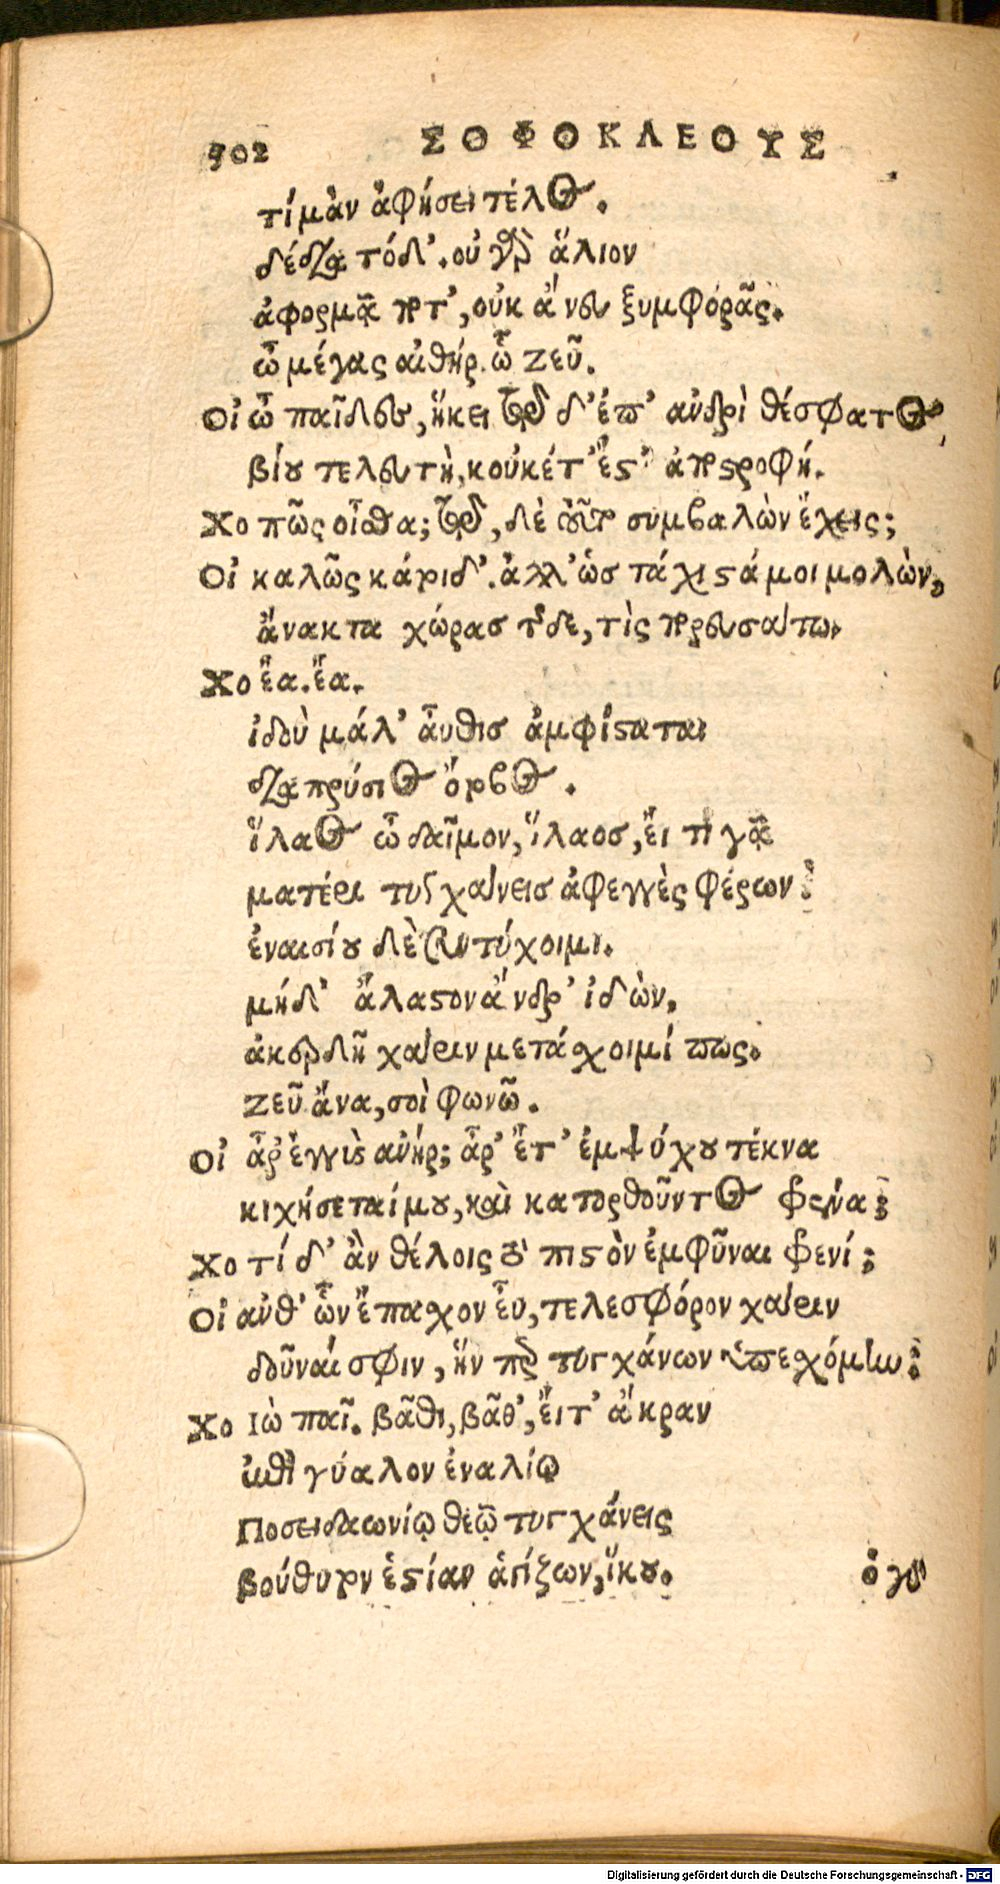 302 ΣΟΦΟΚΛΕΟΥΣ
τί μὰν ἀφήσει τέλος.
δέδια τόδ’. οὐ γὰρ ἅλιον
ἀφορμᾷ ποτ’, οὐκ ἄνευ ξυμφορᾶς.
ὦ μέγας αἰθήρ. ὦ ζεῦ.
Οἰ ὦ παῖδες, ἥκει τῷδ’ ἐπ’ ανδρὶ θέσφατος
βίου τελευτὴ, κοὐκέτ’ ἔστ’ ἀποστροφή.
Χο πῶς οἶσθα; τῷ, δὲ τοῦτο συμβαλὼν ἔχεις;
Οἰ καλῶς κάτοιδ’. ἀλλ’ ὡσ τάχιστά μοι μολὼν,
ἄνακτα χώρασ τῆσδε, τὶς πορευσαίτω.
Χο ἔα. ἔα.
ἰδοὺ μάλ’ αὖθισ ἀμφίσταται
διαπρύσιος ὄτοβος.
ἵλαος ὦ δαῖμον, ἵλαοσ, εἴ τι γᾷ
ματέρι τυγχαίνεισ ἀφεγγὲς φέρων:
ἐναισίου δὲ συντύχοιμι.
μήδ’ ἄλαστον ἄνδρ’ ἰδὼν,
ἀκερδῆ χάριν μετάσχοιμί πως.
ζεῦ ἄνα, σοὶ φωνῶ.
Οἰ ἆρ’ ἐγγὺς ανήρ; ἆρ’ ἔτ’ ἐμψύχου τέκνα
κιχήσεταί μου, καὶ κατορθοῦντος φρένα;
Χο τί δ’ ἂν θέλοις τὸ πιστὸν ἐμφῦναι φρενί;
Οἰ αὐθ’ ὧν ἔπασχον εὖ, τελεσφόρον χάριν
δοῦναί σφιν, ἥν περ τυγχάνων ὑπεσχόμην:
Χο ἰὼ παῖ. βᾶθι, βᾶθ’, εἴτ’ ἄκραν
ἐπὶ γύαλον ἐναλίῳ
Ποσειδαωνίῳ θεῷ τυγχάνεις
βούθυτον ἑστίαν ἁγίζων, ἵκου. ὁ γὰρ
Digitalisierung gefördert durch die Deutsche Forschungsgemeinschaft - DFG